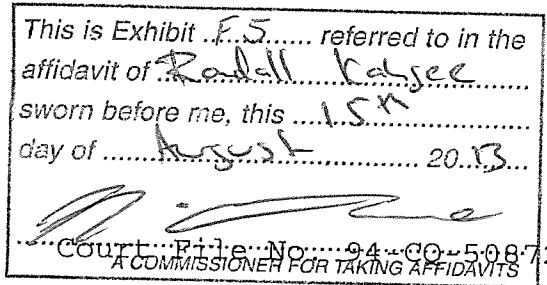 This is Exhibit F5 referred to in the
affidavit of Randall Kahgee
sworn before me, this 15th
day of August 2013.
Court File No. 94-CQ-50872
A COMMISSIONER FOR TAKING AFFIDAVITS